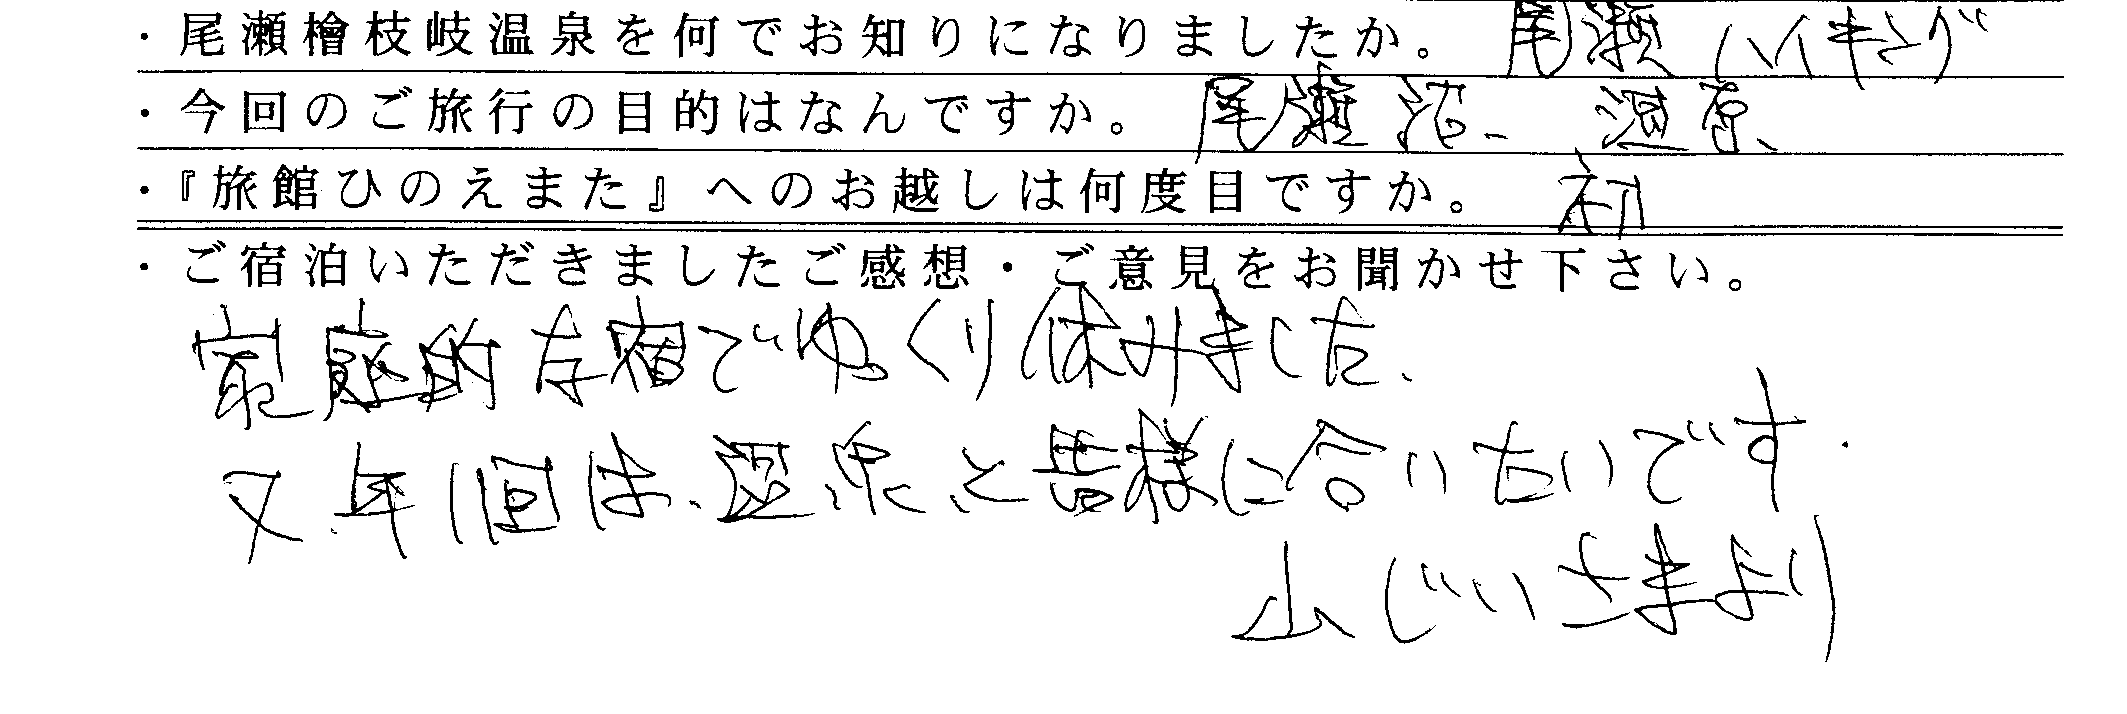 ・尾瀬檜枝岐温泉を何でお知りになりましたか。 尾瀬ハイキング
・今回のご旅行の目的はなんですか。 尾瀬沼、湿原、
・『旅館ひのえまた』へのお越しは何度目ですか。 初
・ご宿泊いただきましたご感想・ご意見をお聞かせ下さい。
家庭的な宿でゆっくり休みました.
又年1回は、温泉と皆様に合いたいです.
山じいさまより